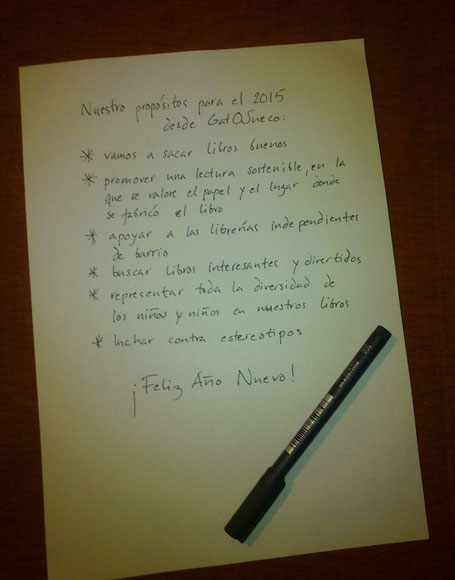 Nuestro propósitos para el 2015
desde GatOSueco:
* vamos a sacar libros buenos
* promover una lectura sostenible, en la
que se valore el papel y el lugar donde
se fabricó el libro
* apoyar a las librerías independientes
de barrio
* buscar libros interesantes y divertidos
* representar toda la diversidad de
los niñas y niños en nuestros libros
* luchar contra estereotipos
¡Feliz Año Nuevo!